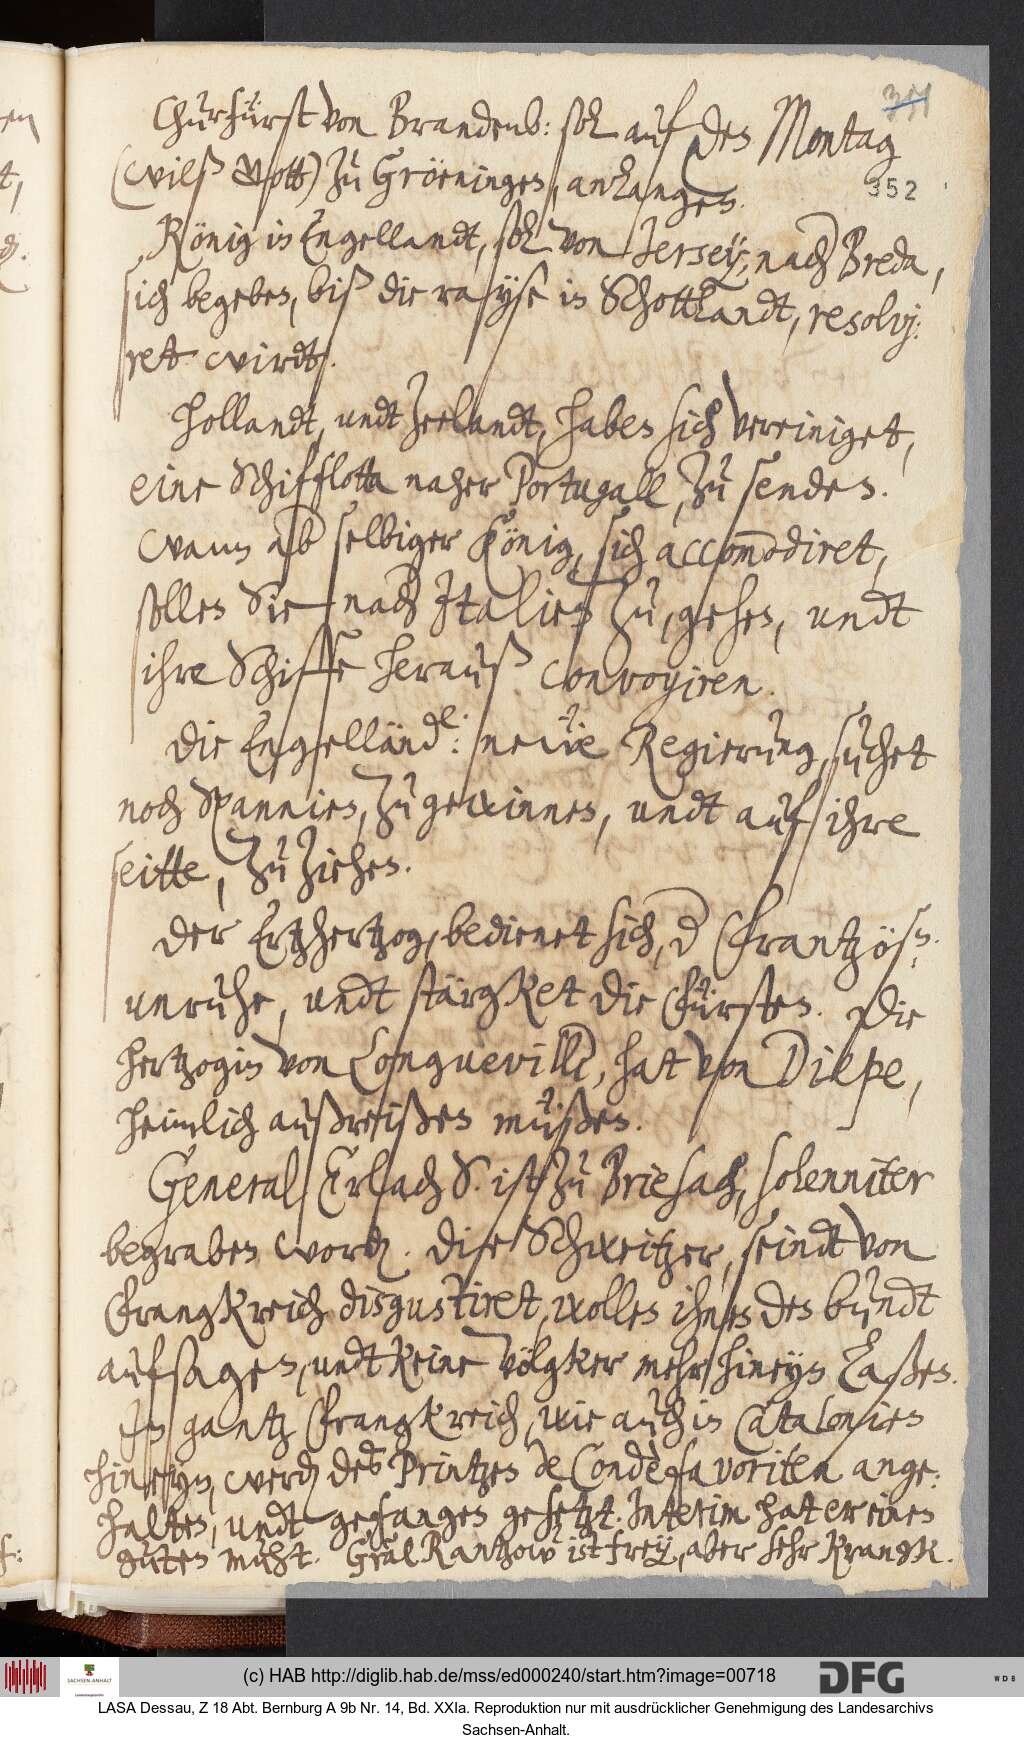 351
Churfürst von Brandenb: soll auf den Montag
352
(wilß Gott) zu Gröeningen, anlangen.
König in Engellandt, soll von Jersey, nach Breda,
sich begeben, biß die rayse in Schottlandt, resolvj:
ret wirdt.
Hollandt, undt Zeelandt, haben sich vereiniget,
eine Schifflotta naher Portugall, zu senden.
Wann ab selbiger König, sich accommodiret,
sollen Sie nach Italien zu, gehen, undt
ihre Schiffe herauß convoyiren.
Die Engelländ.e: neẅe Regierung, suchet
noch Spannien, zu gewinnen, undt auf ihre
seitte, zu ziehen.
Der Ertzhertzog, bedienet sich, d Frantzös:
unruhe, undt stärgket die Fürsten. Die
Hertzogin von Longueville, hat von Diepe,
heimlich außreißen müßen.
General Erlach S. ist zu Briesach, solenniter
begraben word. Die Schweitzer, seindt von
Frangkreich disgustiret, wollen ihnen den bundt
aufsagen, undt keine völgker mehr hineyn laßen.
In gantz Frangkreich, wie auch in Catalonien
hineyn, werd des Printzen de Condè favoriten ange:
halten, undt gefangen gesetzt. Interim hat er einen
guten muht. Gräl Rantzow ist frey, aber sehr krangk.
(c) HAB http://diglib.hab.de/mss/ed000240/start.htm?image=00718
DFG
WDB
SACHSEN-ANHALT
LASA Dessau, Z 18 Abt. Bernburg A 9b Nr. 14, Bd. XXIa. Reproduktion nur mit ausdrücklicher Genehmigung des Landesarchivs
Sachsen-Anhalt.